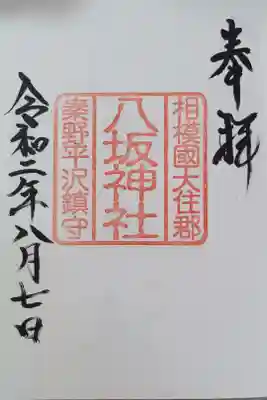 奉拝
相模國大住郡
八坂神社
秦野平沢鎮守
令和二年八月七日